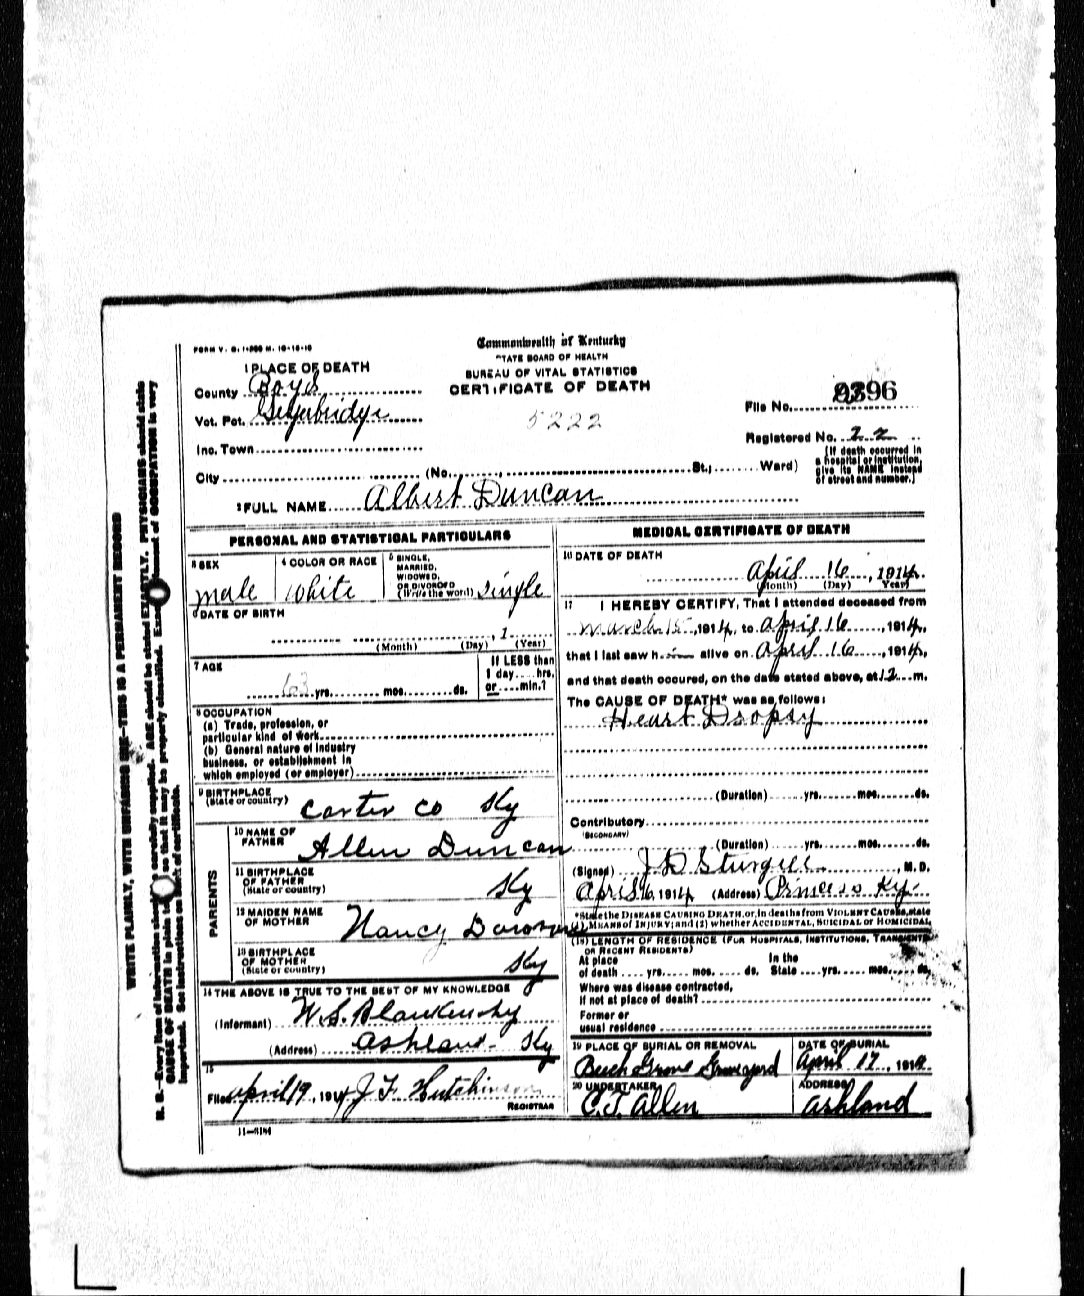 FORM V. S. 1-
Commonwealth of Kentucky
STATE BOARD OF HEALTH
BUREAU OF VITAL STATISTICS
CERTIFICATE OF DEATH
1 PLACE OF DEATH
County Boyd
Vot. Pct. Geigerbridge
Inc. Town
City (No. , St.; Ward)
5222
File No. 9396
Registered No. 22
(If death occurred in a hospital or institution, give its NAME instead of street and number.)
2 FULL NAME Albert Duncan
PERSONAL AND STATISTICAL PARTICULARS
3 SEX male
4 COLOR OR RACE White
5 SINGLE, MARRIED, WIDOWED, OR DIVORCED (Write the word) Single
6 DATE OF BIRTH
, 1
(Month) (Day) (Year)
7 AGE
63 yrs. mos. ds.
If LESS than 1 day hrs. or min.?
8 OCCUPATION
(a) Trade, profession, or
particular kind of work
(b) General nature of industry
business, or establishment in
which employed (or employer)
9 BIRTHPLACE
(State or country) Carter Co Ky
PARENTS
10 NAME OF FATHER Allen Duncan
11 BIRTHPLACE OF FATHER (State or country) Ky
12 MAIDEN NAME OF MOTHER Nancy
13 BIRTHPLACE OF MOTHER (State or country) Ky
14 THE ABOVE IS TRUE TO THE BEST OF MY KNOWLEDGE
(Informant) W. S. Blankenship
(Address) Ashland Ky
15
Filed april 19, 1914 J F Hutchinson
REGISTRAR
11-5184
MEDICAL CERTIFICATE OF DEATH
16 DATE OF DEATH
April 16, 1914
(Month) (Day) Year)
17 I HEREBY CERTIFY, That I attended deceased from
March 15, 1914, to april 16, 1914,
that I last saw him alive on april 16, 1914,
and that death occured, on the date stated above, at 12 m.
The CAUSE OF DEATH* was as follows:
Heart Dropsy
(Duration) yrs. mos. ds.
Contributory
(SECONDARY)
(Duration) yrs. mos. ds.
(Signed) J D Sturgill M. D.
April 16, 1914 (Address) Princess Ky.
*State the DISEASE CAUSING DEATH, or, in deaths from VIOLENT CAUSES, state
MEANS of INJURY; and (2) whether ACCIDENTAL, SUICIDAL or HOMICIDAL
(18) LENGTH OF RESIDENCE (FOR HOSPITALS, INSTITUTIONS, TRANSIENTS
OR RECENT RESIDENTS)
At place In the
of death yrs. mos. ds. State yrs. mos. ds.
Where was disease contracted,
if not at place of death?
Former or
usual residence
19 PLACE OF BURIAL OR REMOVAL
Beech Grove Graveyard
DATE OF BURIAL
april 17, 1914
20 UNDERTAKER
C. T. Allen
ADDRESS
ashland
N. B.—Every item of information should be carefully supplied. AGE should be stated EXACTLY. PHYSICIANS should state
CAUSE OF DEATH in plain terms, so that it may be properly classified. Exact statement of OCCUPATION is very
important. See instructions on back of certificate.
WRITE PLAINLY, WITH UNFADING INK—THIS IS A PERMANENT RECORD